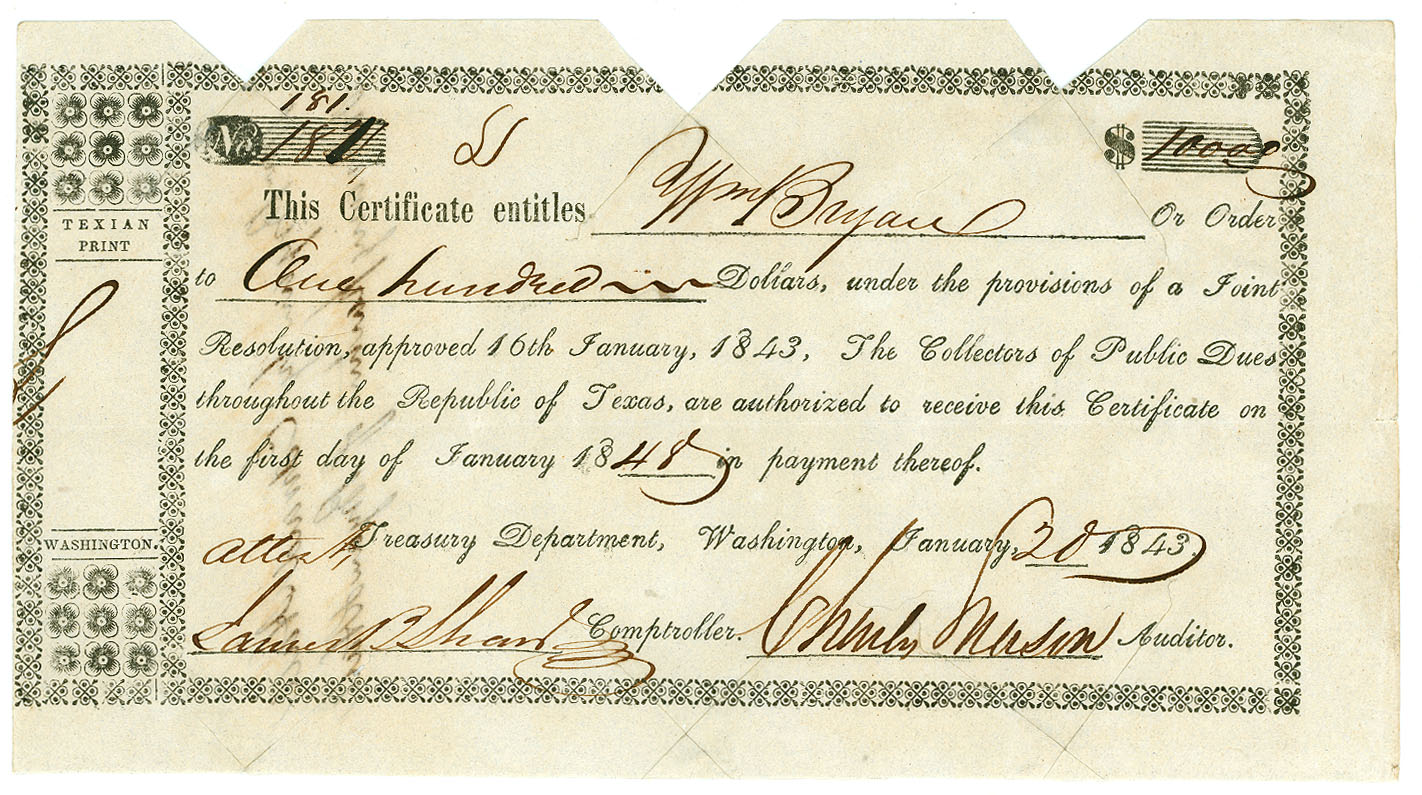 181
No. 181
$ 10000
This Certificate entitles Wm Bryan Or Order
to One hundred Dollars, under the provisions of a Joint
Resolution, approved 16th January, 1843, The Collectors of Public Dues
throughout the Republic of Texas, are authorized to receive this Certificate on
the first day of January 1848 in payment thereof.
attest Treasury Department, Washington, January, 28 1843.
James B Shaw Comptroller. Charles Mason Auditor.
TEXIAN
PRINT
WASHINGTON.